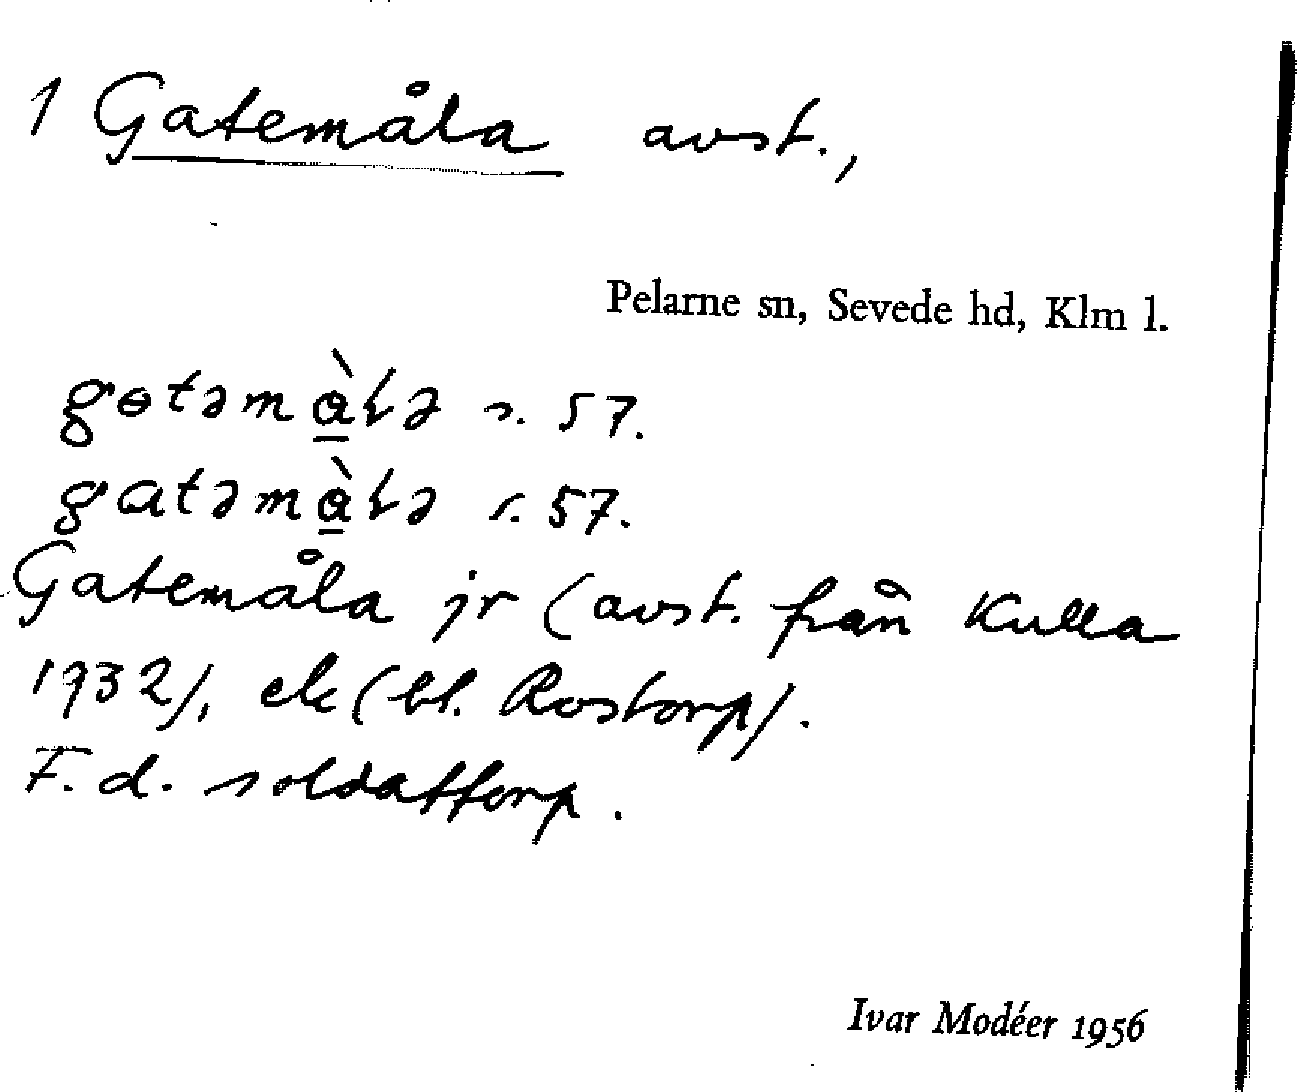 1 Gatemåla avst.,
Pelarne sn, Sevede hd, Klm l.
gɵtəmὰ̲ɫə s. 57.
gatəmὰ̲ɫə s. 57.
Gatemåla jr (avst. från Kulla
1932), ek (bl. Rostorp).
F. d. soldattorp.
Ivar Modéer 1956